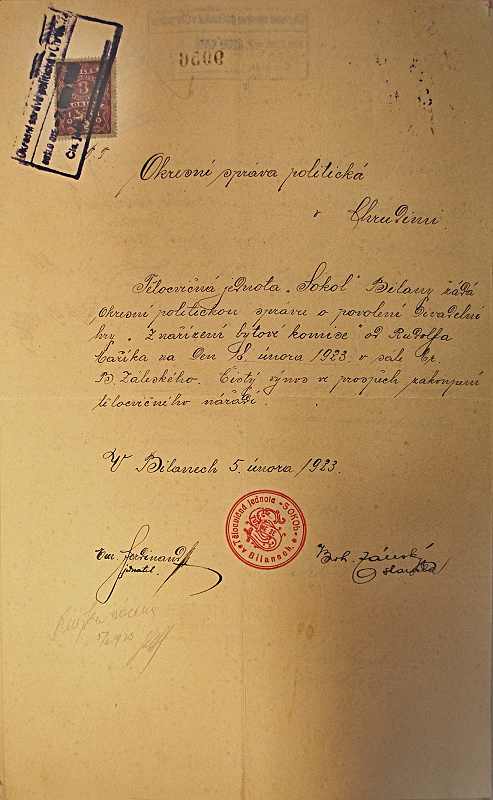 Okresní správa politická
v Chrudimi.
Tělocvičná jednota "Sokol" Bílany žádá
okresní politickou správu o povolení divadelní
hry "Z nařízení bytové komise" od Rudolfa
Maříka na den 18. února 1923 v sále Br.
B. Záleského. Čistý výnos ve prospěch zakoupení
tělocvičného nářadí.
V Bílanech 5. února 1923.
Tělocvičná jednota "SOKOL" v Bílanech.
Em. Ferdinand
jednatel.
Boh.
starosta